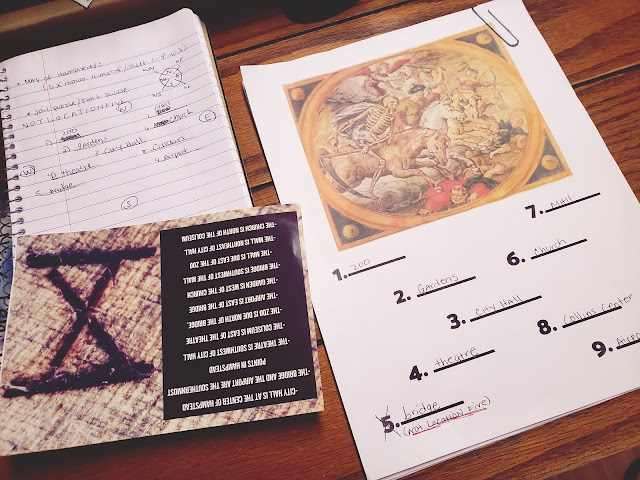 Map of Hampstead:
NOT LOCATION FIVE
zoo
Mall
gardens
church
theatre
City Hall
airport
5. bridge
N
W
E
S
-CITY HALL IS AT THE CENTER OF HAMPSTEAD
-THE BRIDGE AND THE AIRPORT ARE THE SOUTHERNMOST
POINTS IN HAMPSTEAD
-THE THEATRE IS SOUTHWEST OF CITY HALL
-THE COLISEUM IS EAST OF THE THEATRE
-THE ZOO IS DUE NORTH OF THE BRIDGE
-THE AIRPORT IS EAST OF THE BRIDGE
-THE GARDEN IS WEST OF THE CHURCH
-THE BRIDGE IS SOUTHWEST OF THE MALL
-THE MALL IS DUE EAST OF THE ZOO
-THE MALL IS NORTHEAST OF CITY HALL
-THE CHURCH IS NORTH OF THE COLISEUM
1. ZOO
2. Gardens
3. City Hall
4. theatre
5. bridge
(NOT LOCATION FIVE)
6. Church
7. Mall
8. Collins Center
9. Airpo